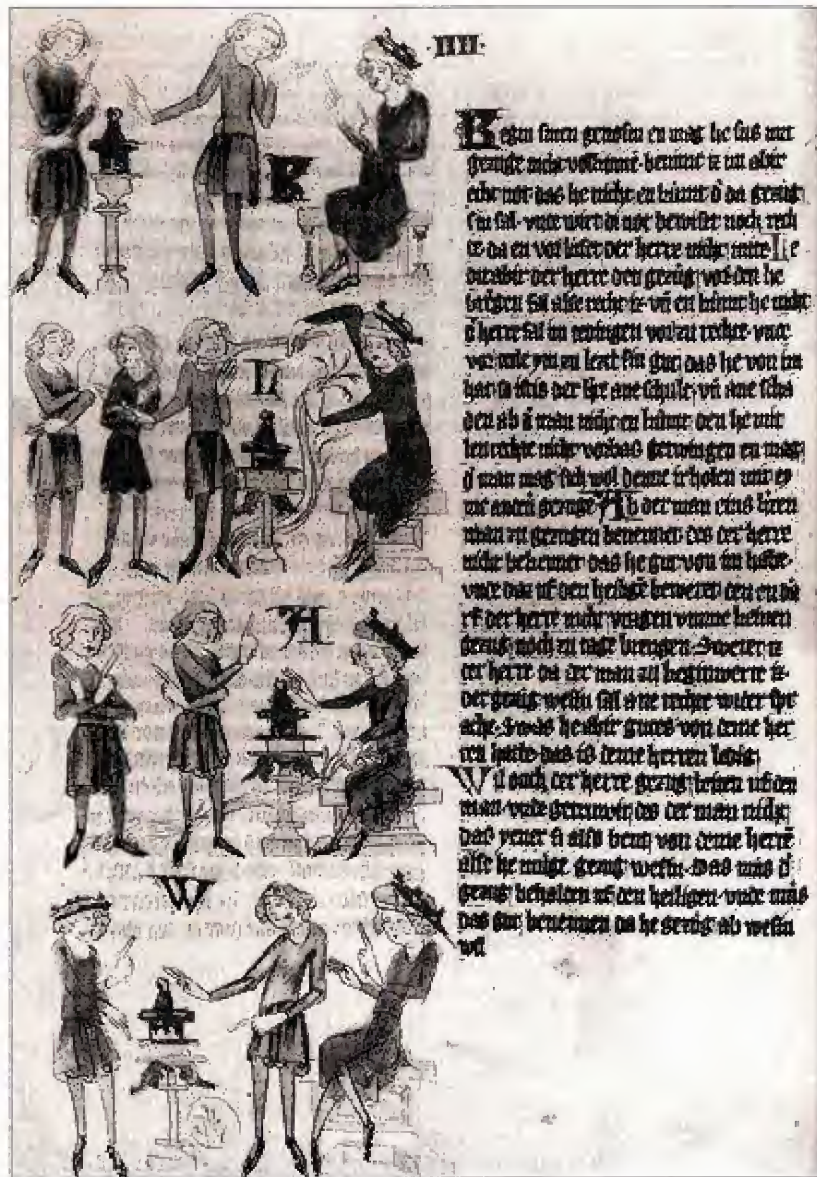 ·IIII·
K
Kegin sinen genosin en mag he sus mit
gezuge nicht volkumē benimt iz im abir
echt not das he nicht en kumt d' da gezug
sin sal vnde wirt di not bewiset noch rech
te da en vorluset der herre nicht mite Le
dit abir der herre den gezug vf den he
brēgen sal alse recht iz vn̄ en kumt he nicht
d' herre sal in twingen wol zu rechte vnde
vorteile ym zu lest sin gut das he von im
hat so ist is der ane schult vn̄ ane scha
den ab d' man nicht en kumt den he mit
len rechte nicht vorbas getwingen en mag
d' man mag sich wol denne ir holen mit ey
me andn̄ gezuge Ab der man eins hr̄ren
man zu gezugen benennet des der herre
nicht bekennet das he gut von im habe
vnde daz uf den heilige beweret den en da
rf der herre nicht vmme keinen
gezug noch zu tage brengen Sweter iz
der herre da der man zu keginwerte iz
der gezug wesin sal ane rechte wider spr
ache Swas he abir gutes von deme her
ren hatte das is deme herren ledig
Wil ouch der herre gezug leiten uf den
man vnde des der man nicht
das yener si also von deme herrē
alse he muge gezug wesin das mus d'
gezug behalden uf den heiligen vnde mus
das gut benennen da he gezug ab wesin
wil
L
A
W